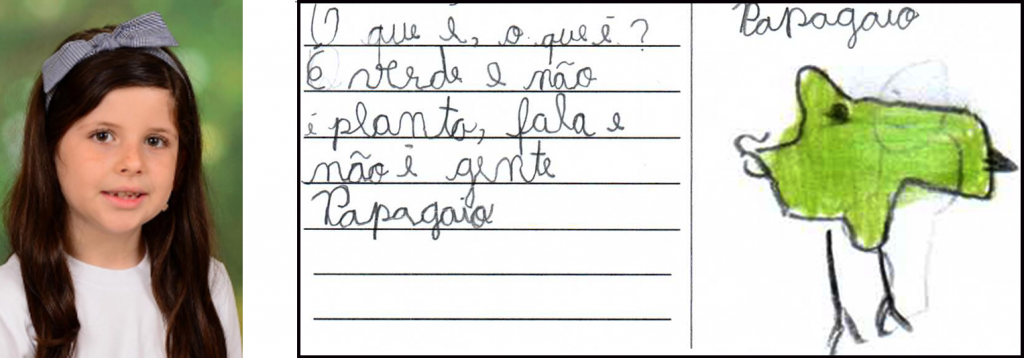 O que é, o que é?
É verde e não
é planta, fala e
não é gente
Papagaio
Papagaio